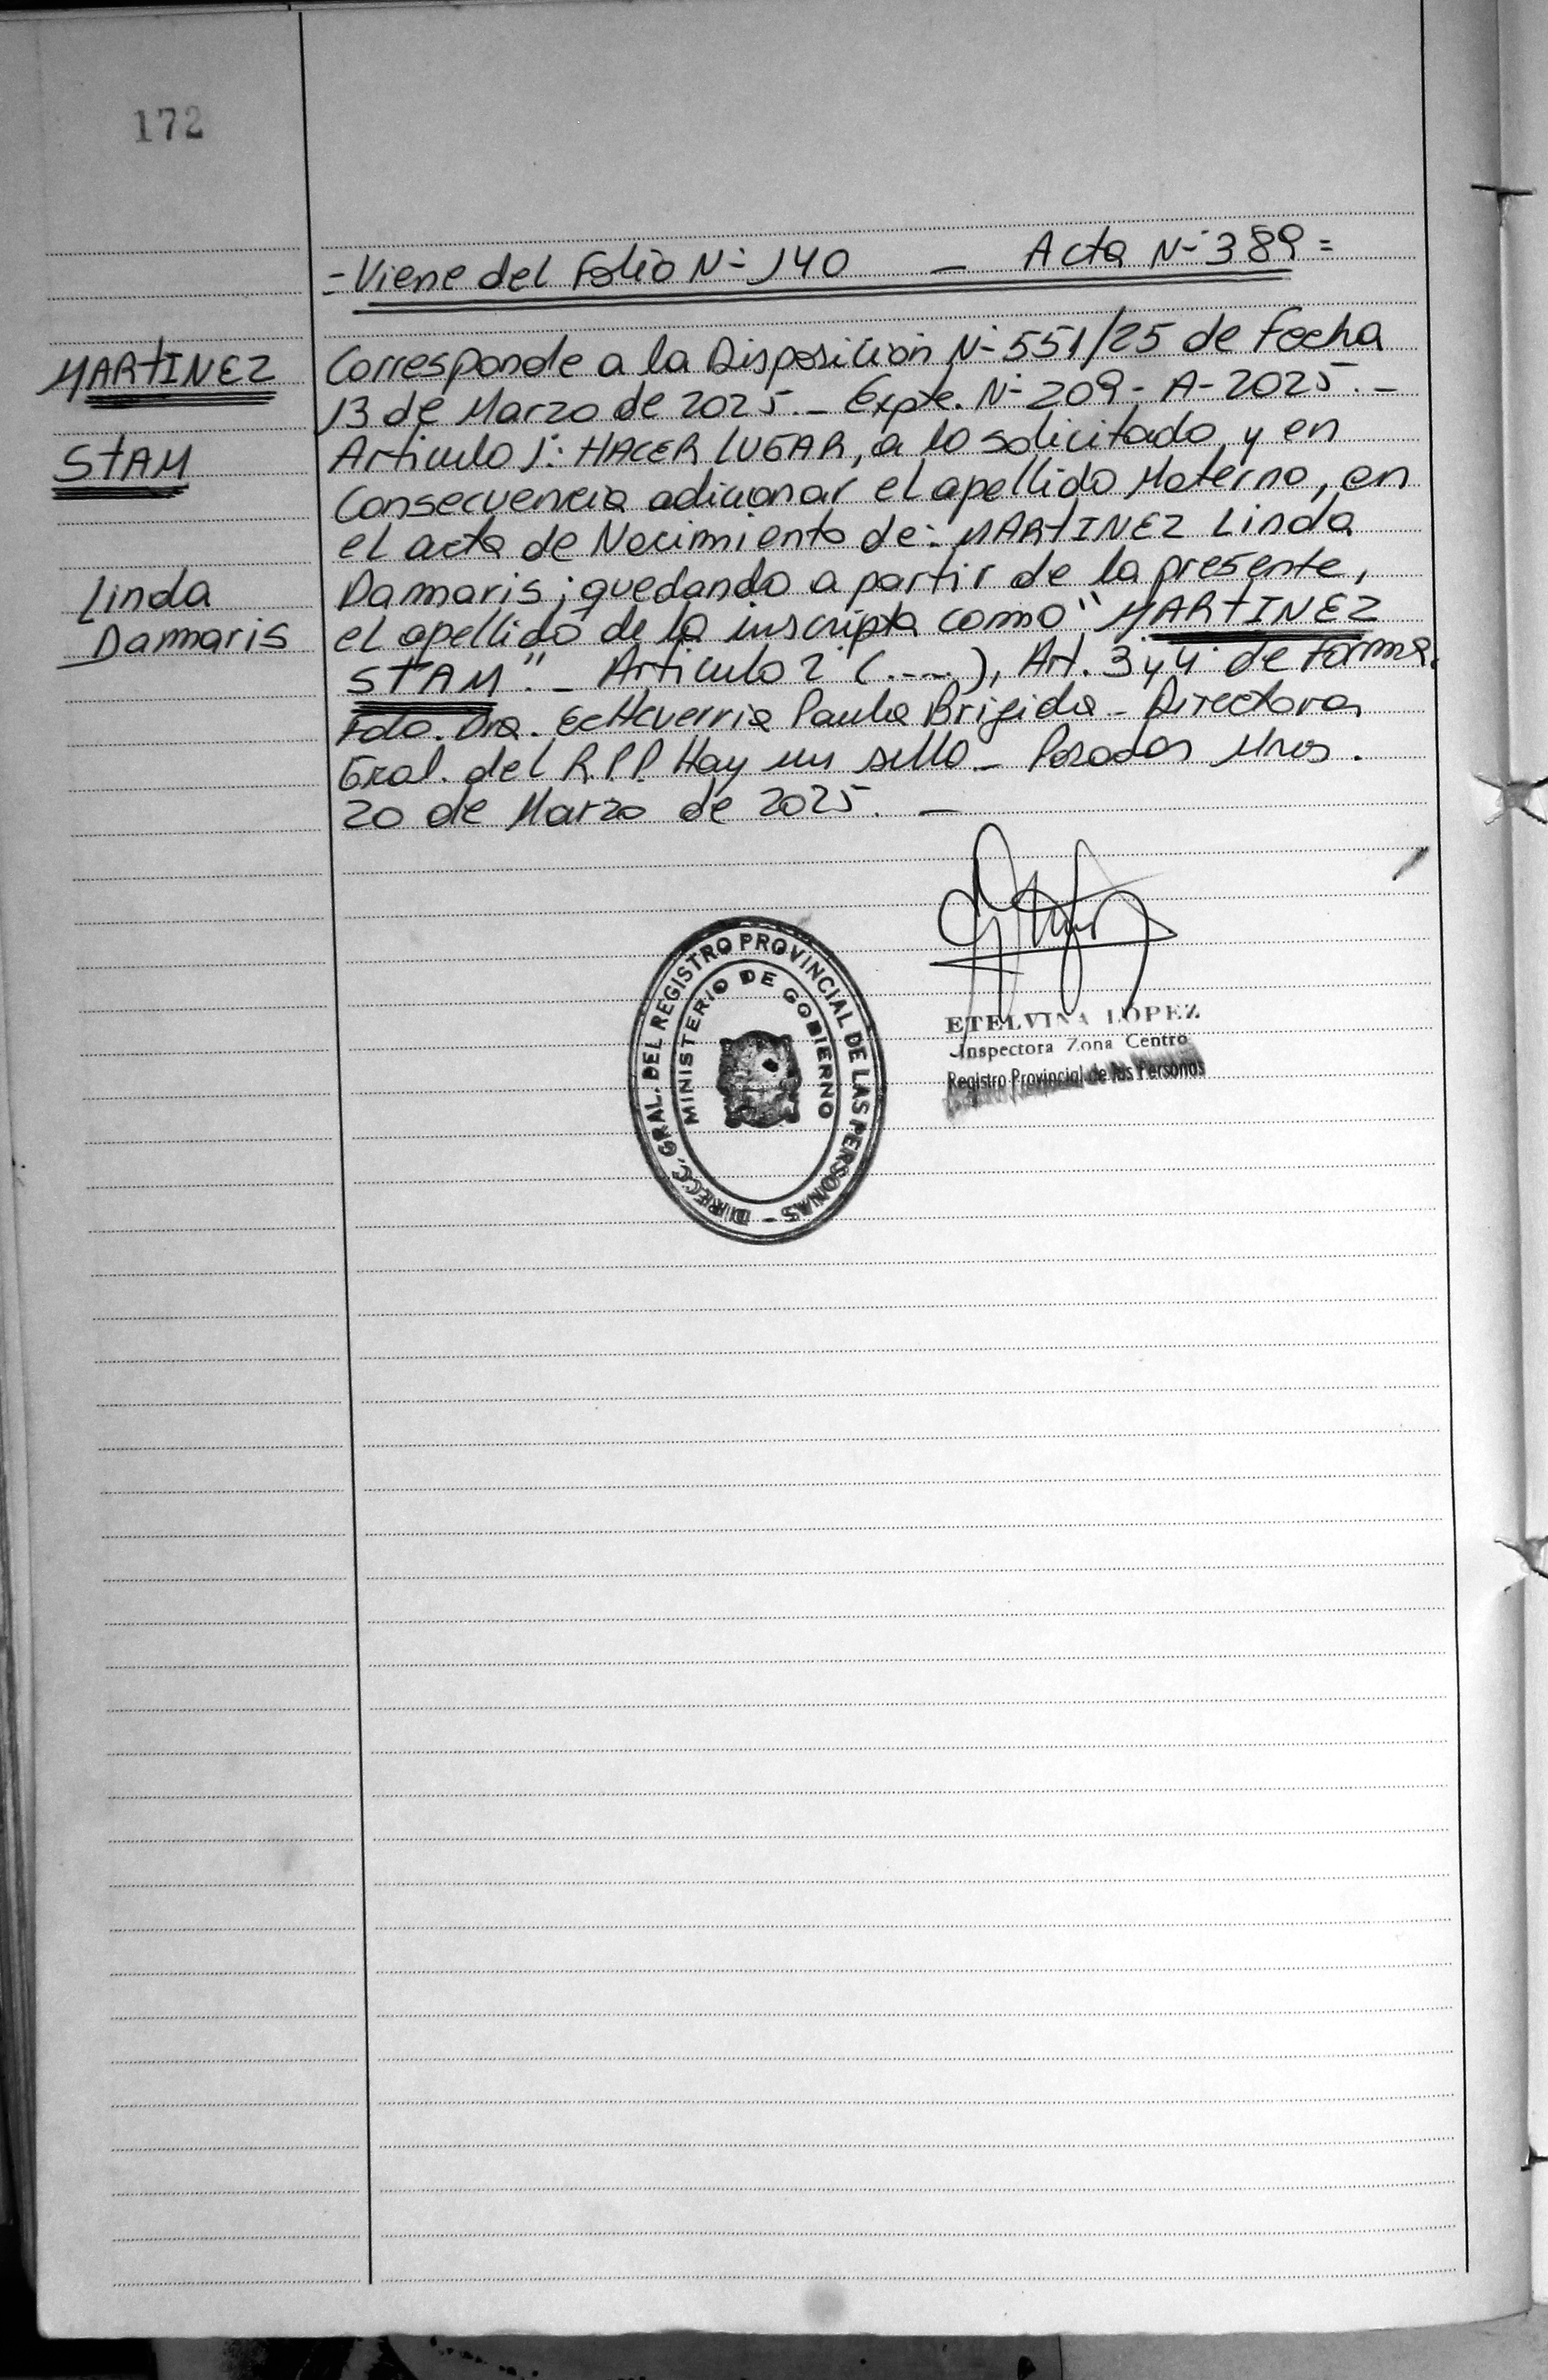 172
- Viene del Folio N- 140 - Acta N- 389 =
MARTINEZ
STAM
Linda
Dammaris
Corresponde a la Disposición N- 551/25 de Fecha
13 de Marzo de 2025.- Expte. N- 209- A- 2025.-
Articulo 1: HACER LUGAR, a lo solicitado, y en
Consecuencia adicionar el apellido Materno, en
el acta de Nacimiento de: MARTINEZ Linda
Dammaris; quedando a partir de la presente,
el apellido de la inscripta como "MARTINEZ
STAM".- Articulo 2 (....), Art. 3 y 4 de Forma.
Fdo. Dra. Echeverria Paula Brigida - Directora
Gral. del R.P.P. Hay un sello - Posadas Mnes.
20 de Marzo de 2025. -
DIRECC. GRAL. DEL REGISTRO PROVINCIAL DE LAS PERSONAS -
MINISTERIO DE GOBIERNO
ETELVINA LOPEZ
Inspectora Zona Centro
Registro Provincial de las Personas